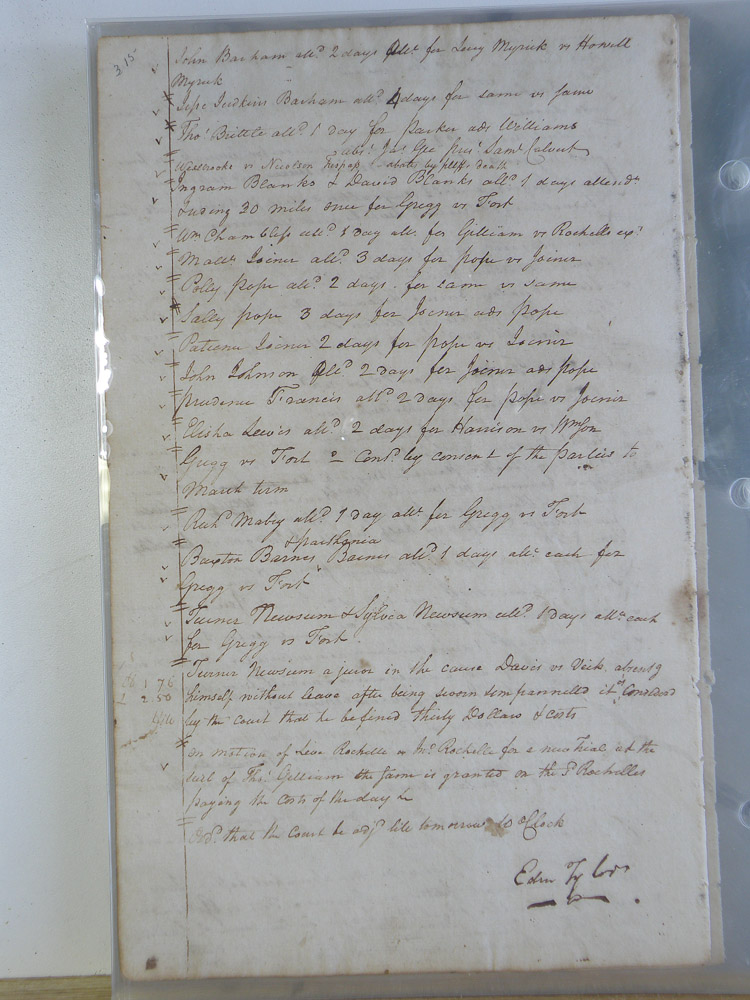 315
John Barham allᵈ 2 days attᵉ for Levy Myrick vs Howell
Myrick
Jesse Judkins Barham allᵈ 4 days for same vs same
Thoˢ Brittle allᵈ 1 day for Parker ads Williams
absᵗ Jas Gee presᵗ Samˡ Calvert
Westbrooke vs Nicolson Trespass abates by pltffs death
Ingram Blanks & David Blanks allᵈ 1 days attendᵉ
& using 20 miles each for Gregg vs Fort
Wᵐ Chambliss allᵈ 1 day att for Gilliam vs Rochells exʳ
Matthʷ Joiner allᵈ 3 days for Pope vs Joiner
Polly Pope allᵈ 2 days for same vs same
Sally Pope 3 days for Joiner ads Pope
Patience Joiner 2 days for Pope vs Joiner
John Johnson allᵈ 2 days for Joiner ads Pope
Prudence Francis allᵈ 2 days for Pope vs Joiner
Elisha Lewis allᵈ 2 days for Harrison vs Wmson
Gregg vs Fort = Contᵈ by consent of the parties to
March term
Richᵈ Mabry allᵈ 1 day attᵉ for Gregg vs Fort
& Parthenia
Buxton Barnes Barnes allᵈ 1 days attᵉ each for
Gregg vs Fort
Turner Newsum & Sylvia Newsum allᵈ 1 days attᵉ each
for Gregg vs Fort
Turner Newsum a juror in the cause Davis vs Vick absentg
1 76
himself without leave after being sworn & empannelled it is Considered
2.50
by the Court that he be fined thirty Dollars & costs
on motion of Levi Rochelle &
Rochelle for a new Trial at the
suit of Thoˢ Gilliam the same is granted on the sᵈ Rochelles
paying the costs of the day &c
Ordᵈ that the Court be adjᵈ till tomorrow 10 oClock
Edm Tylor